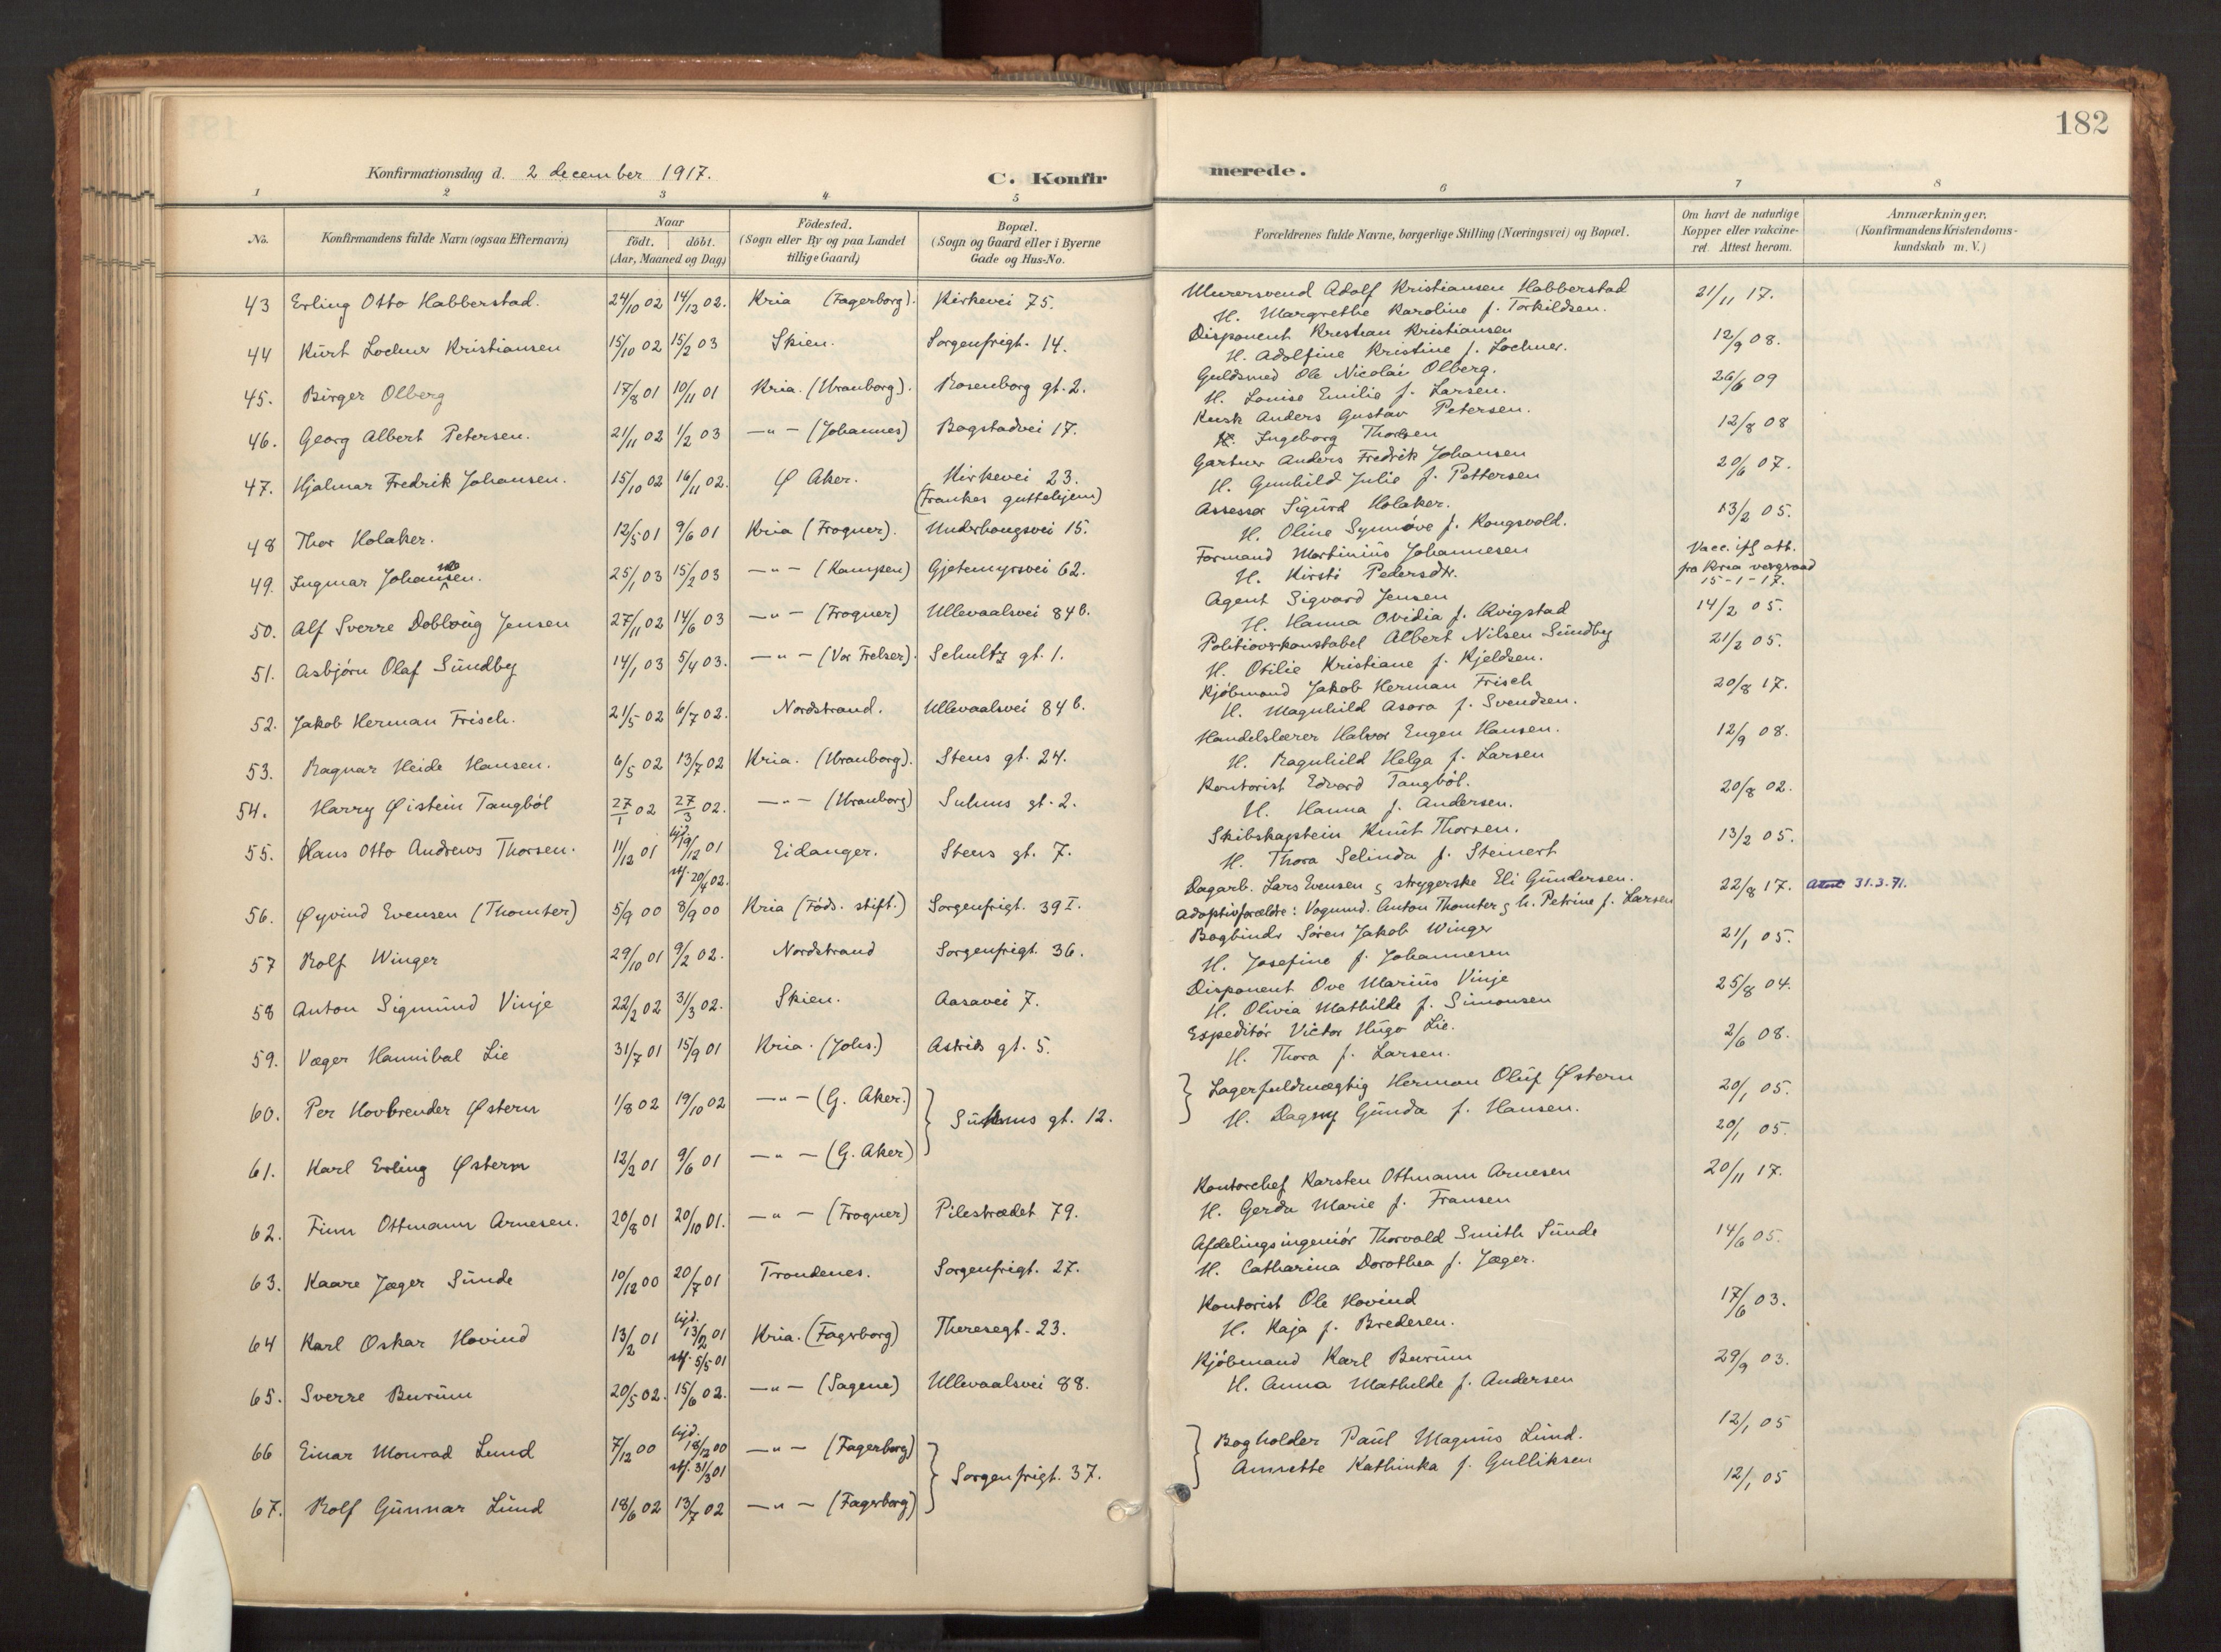 182
Konfirmationsdag d. 2 december 1917. C. Konfir merede.
1 2 3 4 5 6 7 8
No. Konfirmandens fulde Navn (ogsaa Efternavn) Naar födt. döbt. (Aar, Maaned og Dag) Födested. (Sogn eller By og paa Landet tillige Gaard) Bopæl. (Sogn og Gaard eller i Byerne Gade og Hus-No. Forældrenes fulde Navne, borgerlige Stilling (Næringsvei) og Bopæl. Om havt de naturlige Kopper eller vakcineret. Attest herom. Anmærkninger. (Konfirmandens Kristendomskundskab m. V.)
43 Erling Otto Habberstad. 24/10 02 14/12 02. Kria (Fagerborg). Kirkevei 75. Murersvend Adolf Kristiansen Habberstad 21/11 17.
H. Margrethe Karoline f. Torkildsen.
44 Kurt Lochner Kristiansen 15/10 02 15/2 03 Skien. Sorgenfrigt. 14. Disponent Kristian Kristiansen 12/9 08.
H. Adolfine Kristine f. Lochner.
45. Birger Olberg 17/8 01 10/11 01 Kria. (Uranborg). Rosenborg gt. 2. Guldsmed Ole Nicolai Olberg. 26/6 09
H. Louise Emilie f. Larsen.
46. Georg Albert Petersen. 21/11 02 1/2 03 —"— (Johannes) Bogstadvei 17. Kusk Anders Gustav Petersen. 12/8 08
H. Ingeborg Thorsen
47. Hjalmar Fredrik Johansen. 15/10 02 16/11 02. Ø Aker. Kirkevei 23. Gartner Anders Fredrik Johansen 20/6 07.
(Frankes guttehjem) H. Gunhild Julie f. Pettersen
48 Thor Holaker. 12/5 01 9/6 01 Kria (Frogner). Underhaugsvei 15. Assessor Sigurd Holaker. 13/2 05.
H. Oline Synnøve f. Kongsvold.
49. Ingmar Johannesen. 25/1 03 15/2 03 —"— (Kampen) Gjetemyrsvei 62. Formand Martinius Johannesen Vacc. ifl att.
H. Kirsti Pedersdtr. fra Kria vergeraad
15-1-17.
50. Alf Sverre Dobloug Jensen 27/11 02 14/6 03 —"— (Frogner) Ullevaalsvei 84 b. Agent Sigvard Jensen 14/2 05.
H. Hanna Ovidia f. Kvigstad
51. Asbjörn Olaf Sundby 14/1 03 5/4 03. —"— (Vor Frelser). Schultz gt. 1. Politioverkonstabel Albert Nilsen Sundby 21/2 05.
H. Otilie Kristiane f. Kjeldsen.
52. Jakob Herman Frisch. 21/5 02 6/7 02. Nordstrand. Ullevaalsvei 84 b. Kjöbmand Jakob Herman Frisch 20/8 17.
H. Magnhild Asora f. Svendsen.
53. Ragnar Heide Hansen. 6/5 02 13/7 02 Kria. (Uranborg). Stens gt. 24. Handelslærer Halvor Eugen Hansen. 12/9 08.
H. Ragnhild Helga f. Larsen
54. Harry Øistein Tangböl 27/1 02 27/3 02. —"— (Uranborg) Suhms gt. 2. Kontorist Edvard Tangböl. 20/8 02.
H. Hanna f. Andersen.
55. Hans Otto Andrews Thorsen. 11/12 01 hjd. 19/12 01 Eidanger. Stens gt. 7. Skibskaptein Knut Thorsen. 13/2 05.
stf. 20/4 02. H. Thora Selinda f. Steinert
56. Øyvind Evensen (Thomter) 5/9 00 8/9 00 Kria (Föds. stift.) Sorgenfrigt. 39 I. Dagarb. Lars Evensen & strygerske Eli Gundersen. 22/8 17. Attest 31.3.71.
Adoptivforældre: Vognmd. Anton Thomter & h. Petrine f. Larsen
57 Rolf Winger 29/10 01 9/2 02. Nordstrand Sorgenfrigt. 36. Bogbinder Sören Jakob Winger 21/1 05.
H. Josefine f. Johannesen
58 Anton Sigmund Vinje 22/2 02 31/3 02. Skien. Aasavei 7. Disponent Ove Marius Vinje 25/8 04.
H. Olivia Mathilde f. Simonsen
59. Væger Hannibal Lie 31/7 01 15/9 01 Kria. (Johs.) Astrids gt. 5. Expeditör Victor Hugo Lie. 2/6 08.
H. Thora f. Larsen.
60. Per Hovbrender Østern 1/8 02 19/10 02 —"— (G. Aker.) Suhms gt. 12. Lagerfuldmægtig Herman Oluf Østern 20/1 05.
H. Dagny Gunda f. Hansen.
61. Karl Erling Østern 12/2 01 9/6 01 —"— (G. Aker) 20/1 05.
62. Finn Ottmann Arnesen. 20/8 01 20/10 01. —"— (Frogner) Pilestrædet 79. Kontorchef Karsten Ottmann Arnesen 20/11 17.
H. Gerda Marie f. Fransen
63. Kaare Jæger Sunde 10/12 00 20/7 01 Trondenes. Sorgenfrigt. 27. Afdelingsingeniör Thorvald Smith Sunde 14/6 05.
H. Catharina Dorothea f. Jæger.
64 Karl Oskar Hovind 13/2 01 hjd. 13/2 01 Kria. (Fagerborg) Theresegt. 23. Kontorist Ole Hovind 17/6 03.
stf. 5/5 01 H. Kaja f. Bredesen.
65. Sverre Burum 20/5 02. 15/6 02. —"— (Sagene) Ullevaalsvei 88. Kjöbmand Karl Burum 29/9 03.
H. Anna Mathilde f. Andersen
66 Einar Monrad Lund 7/12 00 hjd. 18/12 00 —"— (Fagerborg) Sorgenfrigt. 37. Bogholder Paul Magnus Lund. 12/1 05
stf. 31/3 01 Annette Kathinka f. Gulliksen
67. Rolf Gunnar Lund 18/6 02 13/7 02 —"— (Fagerborg) 12/1 05